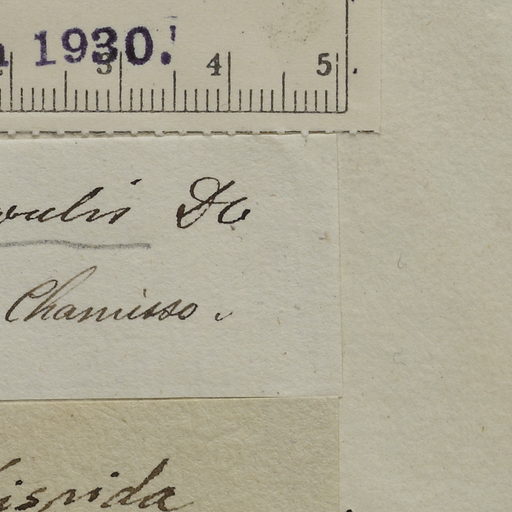 1930.
3 4 5
DC
Chamisso.
hispida